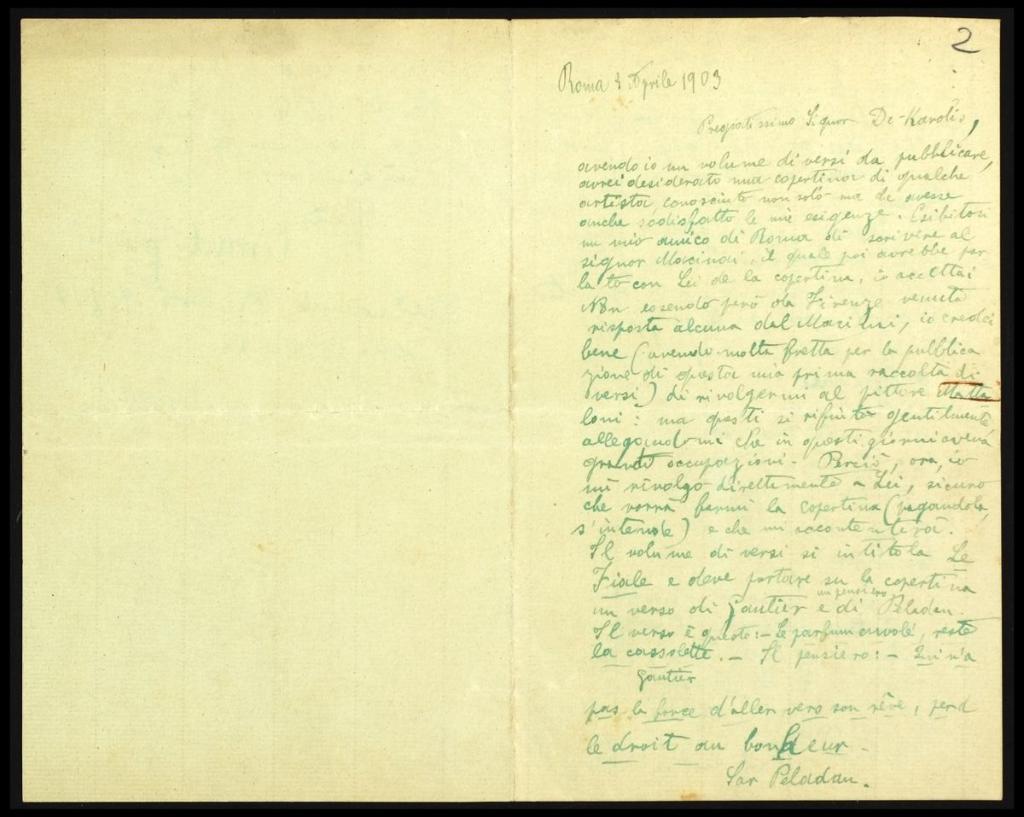 2
Roma 8 Aprile 1903
Pregiatissimo Signor De-Karolis,
avendo io un volume di versi da pubblicare,
avrei desiderato una copertina di qualche
artista conosciuto non solo ma che avesse
anche sodisfatto le mie esigenze. Esibitosi
un mio amico di Roma di scrivere al
signor Macinai, il quale poi avrebbe par
lato con Lei de la copertina, io accettai
Non essendo però da Firenze venuta
risposta alcuna dal Macinai, io credei
bene (avendo molta fretta per la pubblica
zione di questa mia prima raccolta di
versi) di rivolgermi al pittore Matta
loni: ma questi si rifiutò gentilmente
allegandomi che in questi giorni aveva
grandi occupazioni. Perciò, ora, io
mi rivolgo direttamente a Lei, sicuro
che vorrà farmi la copertina (pagandola,
s'intende) e che mi accontenterà.
Il volume di versi si intitola Le
Fiale e deve portare su la copertina
un verso di Gautier e un pensiero di Peladan.
Il verso è questo: - Le parfum envolé, reste
la cassolette. - Il pensiero: - Qui n'a
Gautier
pas la force d'aller vers son rêve, perd
le droit au bonheur -
Sar Peladan.